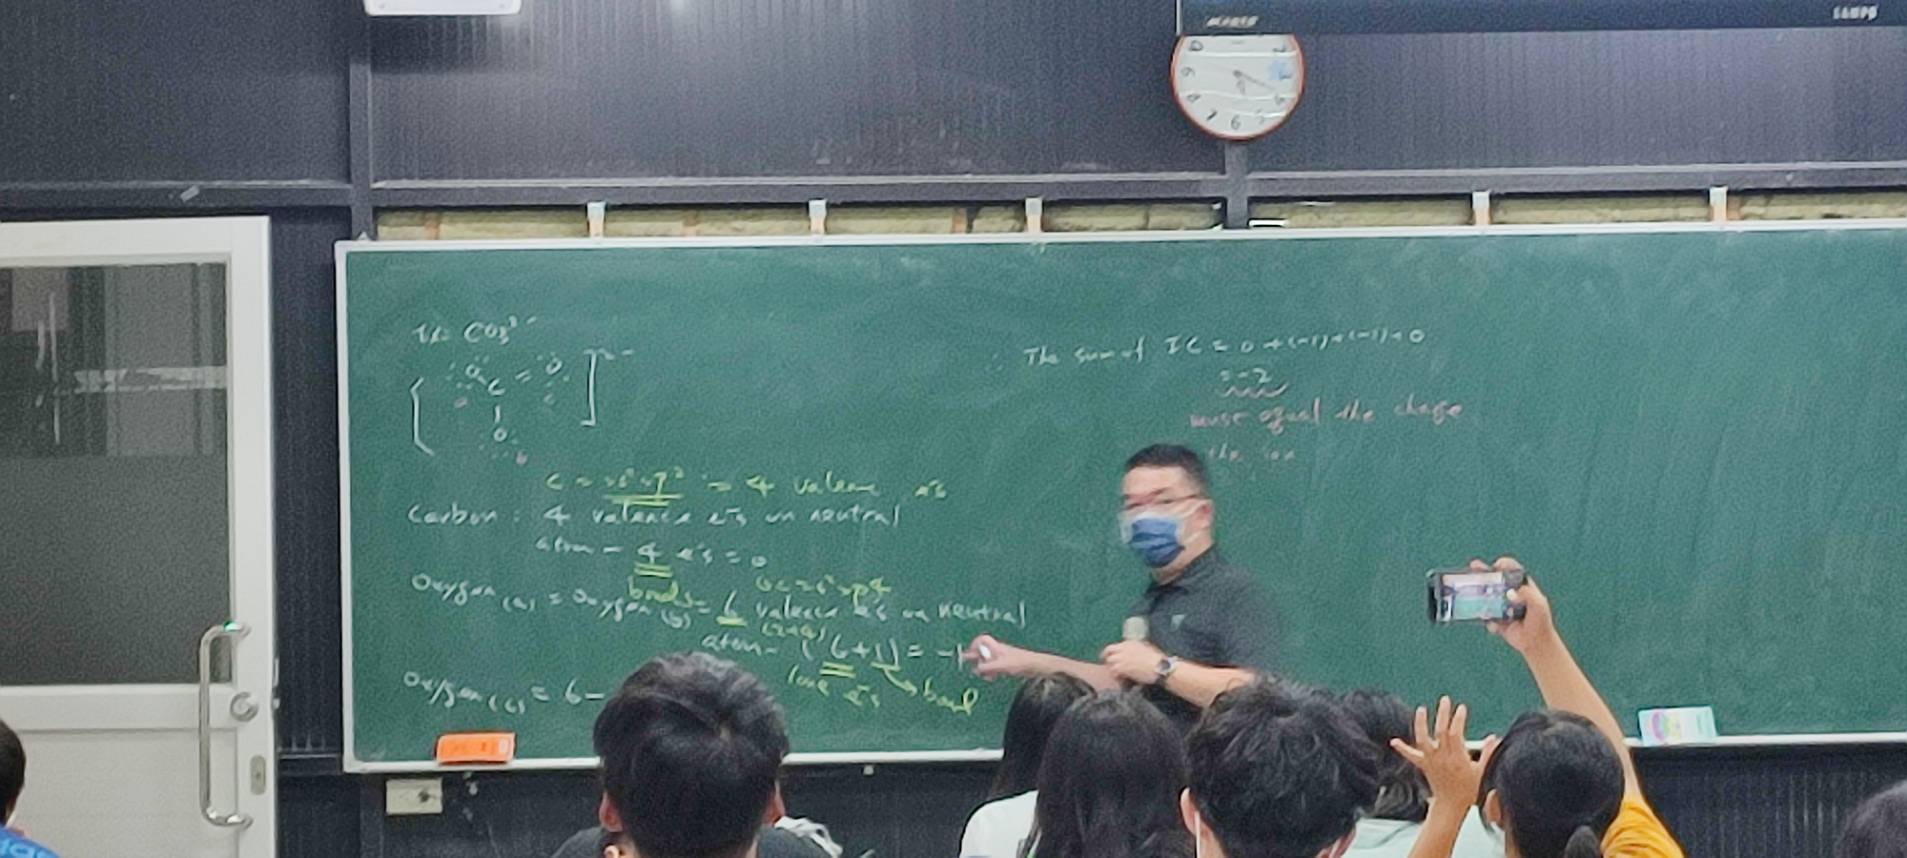 CO3²⁻
C = 2s² 2p² = 4 valence e⁻s
Carbon : 4 valence e⁻s in neutral
atom - 4 e⁻s = 0
bonds
Oxygen (a) = Oxygen (b) = 6 valence e⁻s in neutral
(2+4)
atom - (6+1) = -1
lone e⁻s bond
Oxygen (c) = 6 -
∴ The sum of FC = 0 + (-1) + (-1) + 0
= -2
must equal the charge
the ion
SAMPO